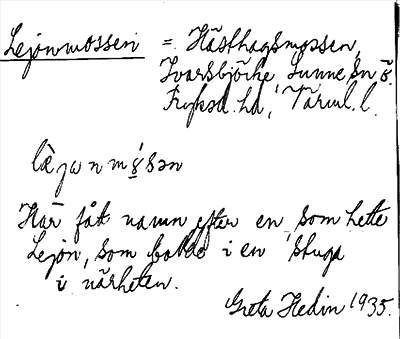 Lejonmossen = Hästhagsmossen,
Ivarsbjörke Sunne sn ö.
Fryksd. hd, Värml. l.
Har fått namn efter en som hette
Lejon, som bodde i en stuga
i närheten.
Greta Hedin 1935.